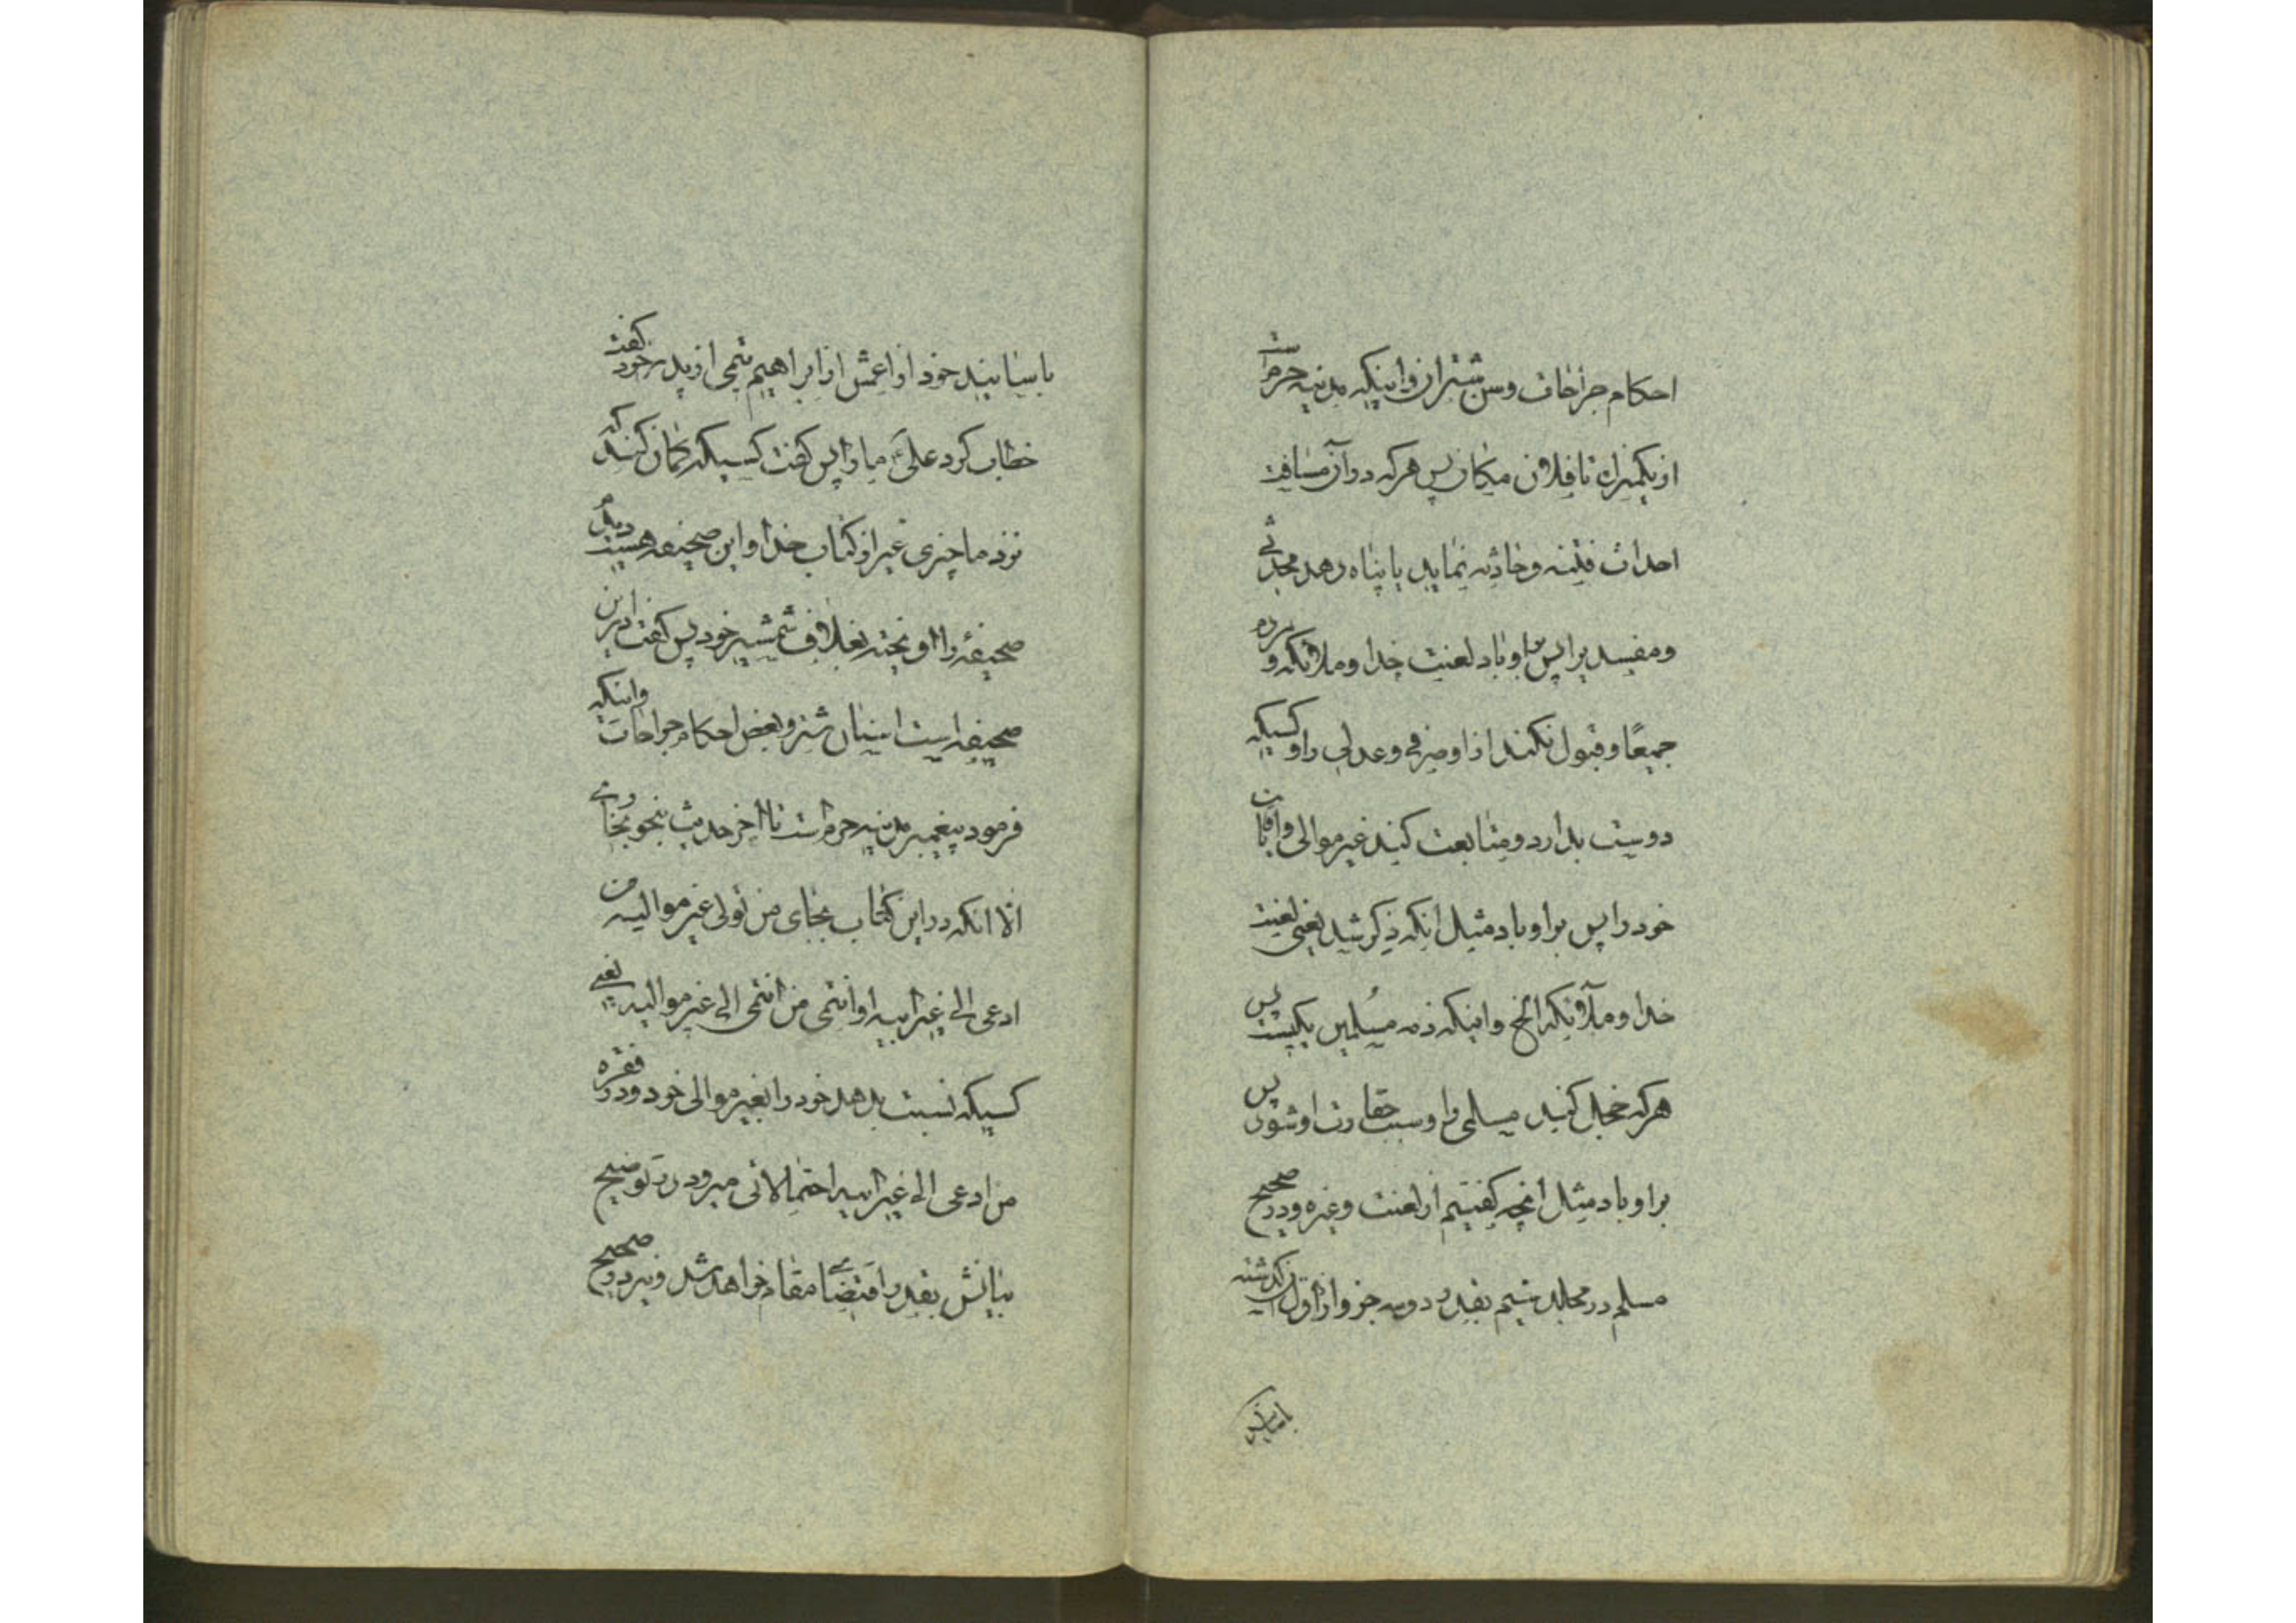 احکام جراحات وسن شتران و اینکه مدینه حرم است
از یکمیراه تا فلان مکان پس هرکه در آن مسافت
احداث فتنه و حادثه نماید یا پناه دهد محدثی
و مفسد یرا پس بر او باد لعنت خدا و ملائکه و مردم
جمیعًا و قبول نکند از او صرفی و عدلی را و کسیکه
دوست بدارد و متابعت کند غیر موالی و آقایان
خود را پس بر او باد مثل آنکه ذکر شد یعنی لعنت
خدا و ملآئکه الخ و اینکه ذمه مسُلمین یکیست پس
هرکه خجل کند مسلمی را و سبب حقارت او شود پس
بر او باد مثل آنچه گفتیم از لعنت و غیره و در صحیح
مسلم در مجلد سیم بقدر دو سه جزو از اول گذشته
باسانید
باسانید خود از اعمش از ابراهیم تیمی از پدر خود گفت
خطاب کرد علیَ ما را پس گفت کسیکه گمان کند که
نزد ما چیزی غیر از کتاب خدا و این صحیفه هست دیگر
صحیفهٔ را آویخته بغلاف شمشیر خود پس گفت در این
صحیفه است اسنان شتر و بعض احکام جراحات و اینکه
فرمود پیغمبر مدینه حرم است تا آخر حدیث بنحو بخاری
الا آنکه در این کتاب بجای من تولی غیر موالیه من
ادعی الی غیر ابیه او انتمی من انتمی الی غیر موالیه یعنی
کسیکه نسبت بدهد خود را بغیر موالی خود و در فقره
من ادعی الی غیر ابیه احتمالاتی میرود در توضیح
بیانش بقدر اقتضای مقام خواهد شد و نیز در صحیح